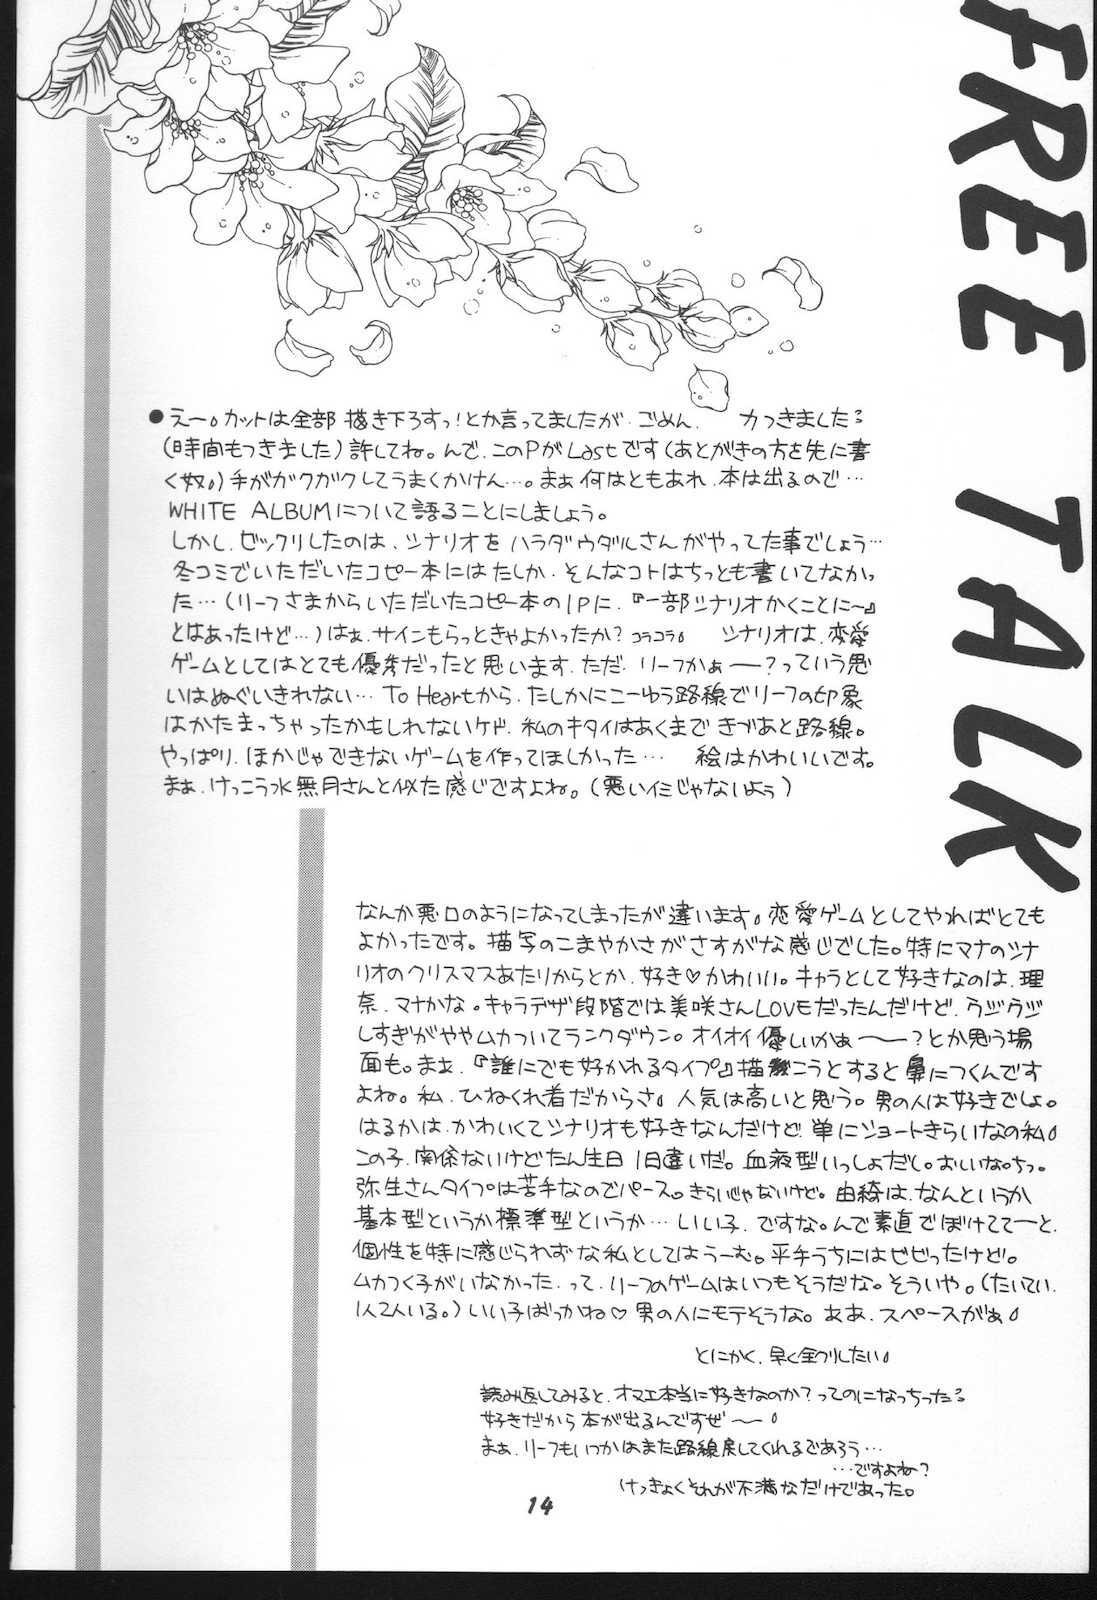 FREE TALK
●えー。カットは全部 描き下ろすっ!とか言ってましたが、ごめん、 力つきました:
(時間もつきました)許してね。んで、このPがLastです(あとがきの方を先に書
く奴。)手がガクガクしてうまくかけん…。まぁ何はともあれ、本は出るので…
WHITE ALBUMについて語ることにしましょう。
しかし、ビックリしたのは、シナリオを ハラダウダルさんがやってた事でしょう…
冬コミでいただいたコピー本にはたしか、そんなコトはちっとも書いてなかっ
た…(リーフさまからいただいたコピー本の1Pに、『一部シナリオかくことに〜』
とはあったけど…)はぁ、サインもらっときゃよかったか?コラコラ。 シナリオは、恋愛
ゲームとしてはとても優秀だったと思います、ただ、リーフかぁー?っていう思
いはぬぐいきれない… To Heartから、たしかにこーゆう路線でリーフの印象
はかたまっちゃったかもしれないケド、私のキタイはあくまで きづあと路線。
やっぱり、ほかじゃできないゲームを作ってほしかった… 絵はかわいいです。
まぁ、けっこう水無月さんと似た感じですよね。(悪いイミじゃないよぅ)
なんか悪口のようになってしまったが違います。恋愛ゲームとしてやればとても
よかったです。描写のこまやかさがさすがな感じでした。特にマナのシナ
リオのクリスマスあたりからとか、好き♡かわいい。キャラとして好きなのは、理
奈、マナかな。キャラデザ段階では美咲さんLOVEだったんだけど、ウジウジ
しすぎがややムカついてランクダウン。オイオイ優しいかぁ〜?とか思う場
面も。まぁ、『誰にでも好かれるタイプ』描こうとすると鼻につくんです
よね。私、ひねくれ者だからさ。人気は高いと思う。男の人は好きでしょ。
はるかは、かわいくてシナリオも好きなんだけど、単にショートきらいなの私。
この子、関係ないけどたん生日1日違いだ。血液型いっしょだし。おしいなっちっ。
弥生さんタイプは苦手なのでパース。きらいじゃないけど。由綺は、なんというか
基本型というか標準型というか… いい子、ですな。んで素直でぼけててーと、
個性を特に感じられずな私としてはうーむ。平手うちにはビビったけど。
ムカつく子がいなかった、って、リーフのゲームはいつもそうだな。そういや。(たいてい、
1人2人いる。)いい子ばっかね♡男の人にモテそうな。ああ、スペースがぁ
とにかく、早く全クリしたい。
読み返してみると、オマエ本当に好きなのか?ってのになっちった:
好きだから本が出るんですぜ〜
まぁ、リーフもいつかはまた路線戻してくれるであろう…
…ですよね?
けっきょくそれが不満なだけであった。
14